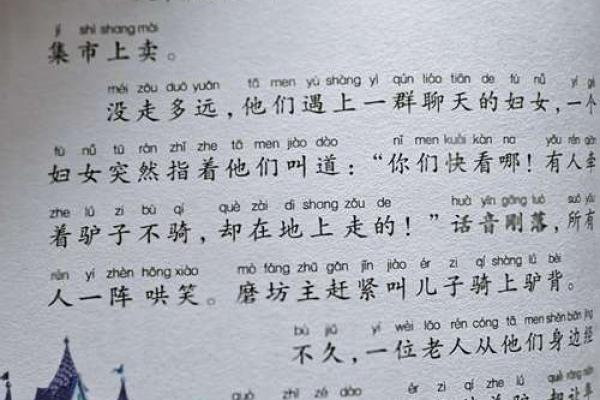 jí shì shang mài
集市上卖。
méi zǒu duō yuǎn tā men yù shàng yì qún liáo tiān de fù nǚ yí gè
没走多远，他们遇上一群聊天的妇女，一个
fù nǚ tū rán zhǐ zhe tā men jiào dào nǐ men kuài kàn na yǒu rén qiān
妇女突然指着他们叫道：“你们快看哪！有人牵
zhe lǘ zi bù qí què zài dì shang zǒu de huà yīn gāng luò suǒ yǒu
着驴子不骑，却在地上走的！”话音刚落，所有
rén yí zhèn hōng xiào mò fáng zhǔ gǎn jǐn jiào ér zi qí shàng lǘ bèi
人一阵哄笑。磨坊主赶紧叫儿子骑上驴背。
bù jiǔ yí wèi lǎo rén cóng tā men shēn biān jīng
不久，一位老人从他们身边经
guò zhǐ zé dào ér zi qí zhe lǘ què ràng nián